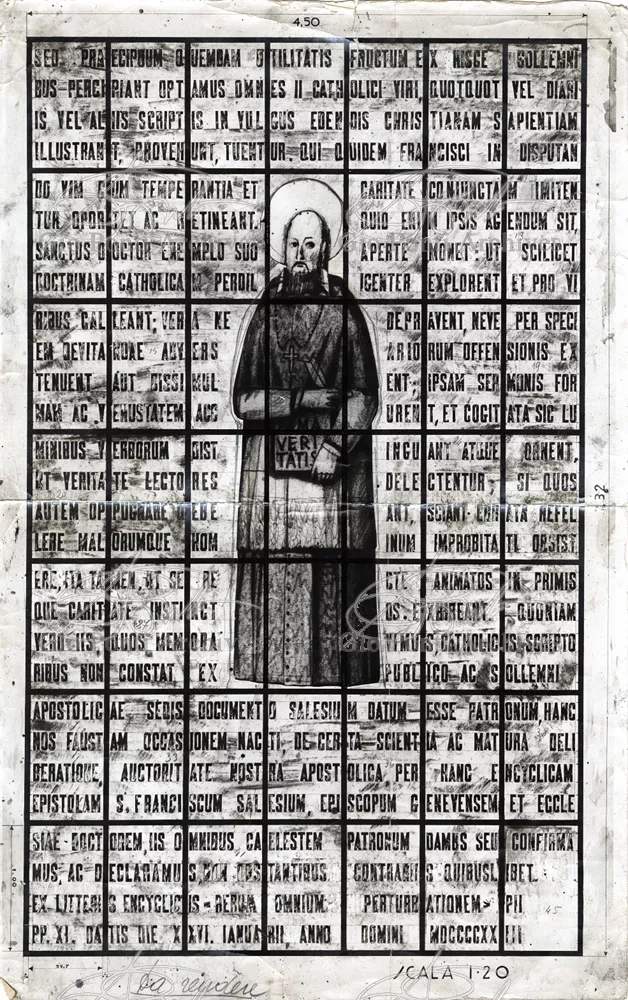 4,50
SED PRAECIPUUM QUEMDAM UTILITATIS FRUCTUM EX HISCE SOLLEMNI
BUS PERCIPIANT OPTAMUS OMNES II CATHOLICI VIRI, QUOTQUOT VEL DIARI
IS VEL ALIIS SCRIPTIS IN VULGUS EDENDIS CHRISTIANAM SAPIENTIAM
ILLUSTRANT, PROVEHUNT, TUENTUR. QUI QUIDEM FRANCISCI IN DISPUTAN
DO VIM CUM TEMPERANTIA ET CARITATE CONIUNCTAM IMITEN
TUR OPORTET AC RETINEANT. QUID ENIM IPSIS AGENDUM SIT,
SANCTUS DOCTOR EXEMPLO SUO APERTE MONET: UT SCILICET
DOCTRINAM CATHOLICAM PERDILIGENTER EXPLORENT ET PRO VI
RIBUS CALLEANT; VERA NE DEPRAVENT, NEVE PER SPECI
EM DEVITANDAE ADVERSARIORUM OFFENSIONIS EX
TENUENT AUT DISSIMULENT; IPSAM SERMONIS FOR
MAM AC VENUSTATEM ACCURENT, ET COGITATA SIC LU
MINIBUS VERBORUM DISTINGUANT ATQUE ORNENT,
UT VERITATE LECTORES DELECTENTUR; SI QUOS
AUTEM OPPUGNARE DEBEANT, SCIANT ERRATA REFEL
LERE MALORUMQUE HOMINUM IMPROBITATI OBSIST
ERE, ITA TAMEN, UT SE RECTE ANIMATOS IN PRIMIS
QUE CARITATE INSTINCTOS EXHIBEANT. QUONIAM
VERO IIS QUOS MEMORAVIMUS, CATHOLICIS SCRIPTO
RIBUS NON CONSTAT EX PUBLICO AC SOLLEMNI
APOSTOLICAE SEDIS DOCUMENTO SALESIUM DATUM ESSE PATRONUM, HANC
NOS FAUSTAM OCCASIONEM NACTI, DE CERTA SCIENTIA AC MATURA DELI
BERATIONE, AUCTORITATE NOSTRA APOSTOLICA, PER HANC ENCYCLICAM
EPISTOLAM S. FRANCISCUM SALESIUM, EPISCOPUM GENEVENSEM ET ECCLE
SIAE DOCTOREM, IIS OMNIBUS CAELESTEM PATRONUM DAMUS SEU CONFIRMA
MUS, AC DECLARAMUS, NON OBSTANTIBUS CONTRARIIS QUIBUSLIBET.
EX LITTERIS ENCYCLICIS "RERUM OMNIUM PERTURBATIONEM" PII
PP. XI. DATIS DIE XXVI. IANUARII, ANNO DOMINI MDCCCCXXIII
VERI
TATIS
SCALA 1·20